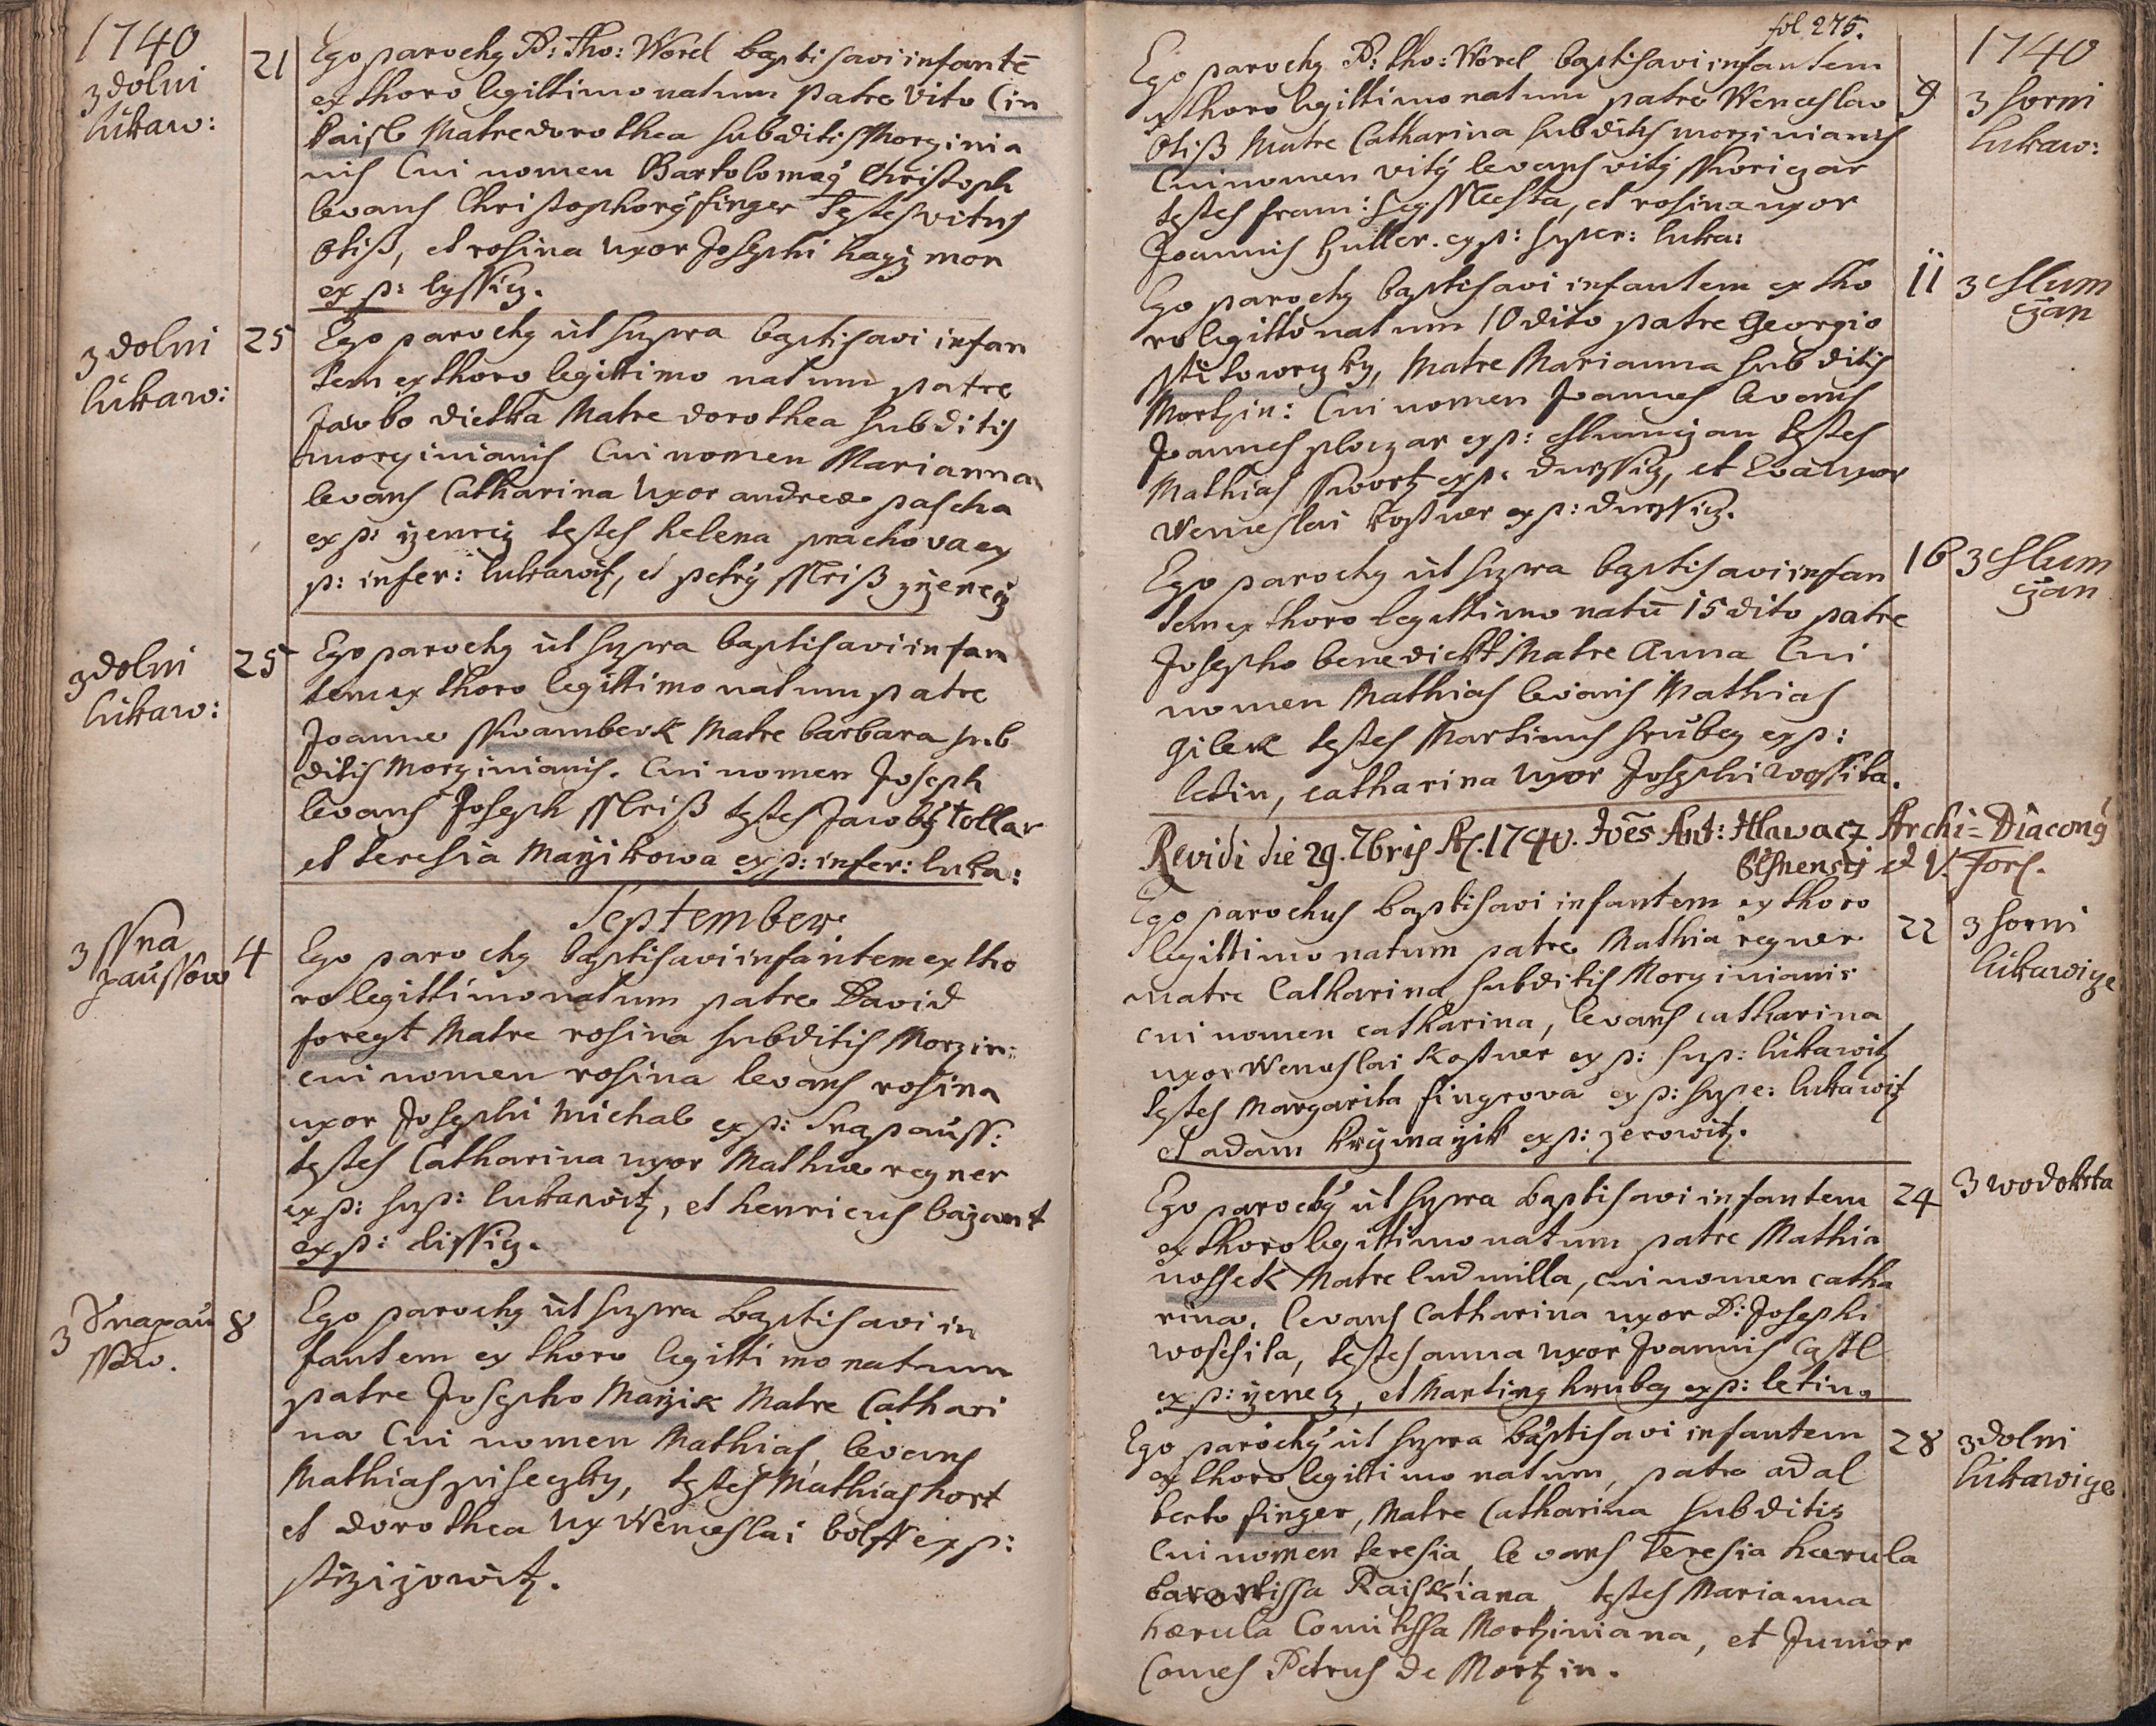 1740
z dolni
lukaw:
21
Ego parochy P: Tho: Worel baptisavi infantē
ex thoro legittimo natum patre Vito Cin
Paisl Matre dorothea subditis Morzinia
nis Cui nomen Bartolomæg Christoph
levans Christophorg finger testes vitus
Otiß, et rosina uxor Josephi hagzmon
ex p: lyssicz.
z dolni
lukaw:
25
Ego parochg ut supra baptisavi infan
tem ex thoro legittimo natum patre
Jacobo dietka Matre dorothea subditis
morzinianis Cui nomen Marianna
levans Catharina Uxor andreæ pascha
ex p: yzencz testes helena prachova ex
p: infer: lukawitz, et petrg Skriß z yzencz
z dolni
lukaw:
25
Ego parochg ut supra baptisavi infan
tem ex thoro legittimo natum patre
Joanne Skwamberk Matre barbara sub
ditis Morzinianis. Cui nomen Joseph
levans Joseph Skriß testes Jacobg tollar
et teresia Manzikowa ex p: infer: luka:
September.
z Sna
paussow
4
Ego parochg baptisavi infantem ex tho
ro legittimo natum patre David
foregt Matre rosina subditis Morzin:
cui nomen rosina levans rosina
uxor Josephi michal ex p: Snapauss:
testes Catharina uxor Mathiæ regner
ex p: sup: lukawitz, et henricus bazant
ex p: lissicz.
z Snapau
ssow.
8
Ego parochg ut supra baptisavi in
fantem ex thoro legittimo natum
patre Josepho Manzik Matre Cathari
na Cui nomen Mathias levans
Mathias piseczky, testes Mathias hort
et dorothea ux Wenceslai bolff ex p:
strzizowitz.
fol 275.
1740
Ego parochg P: tho: Worel baptisavi infantem
ex thoro legittimo natum patre Wenceslao
Otiß Matre Catharina subditis morzinianis
Cui nomen vitg levans vitg Skoriczar
testes fram: sez Mesta, et rosina uxor
Joannis Huller. ex p: super: luka:
9
z horni
lukaw:
Ego parochg baptisavi infantem ex tho
ro legitto natum 10 dito patre Georgio
Stitowczky, Matre Marianna subditis
Mortzin: Cui nomen Joannes levans
Joannes ploczar ex p: chlumczan testes
Mathias Swortz ex p: dnessicz, et Eva uxor
Wenceslai kostner ex p: dnessicz.
11
z Chlum
czan
Ego parochg ut supra baptisavi infan
tem ex thoro legittimo natū 15 dito patre
Josepho benedickt Matre Anna Cui
nomen Mathias levans Mathias
Gilek testes Martinus hrubey ex p:
letin, catharina Uxor Josephi Wossita.
16
z Chlum
czan
Revidi die 29. 7bris A. 1740. Joēs Ant: Hlawacz Archi-Diacong
Plsnensis et V. Fors.
Ego parochus baptisavi infantem ex thoro
legittimo natum patre Mathia regner
matre Catharina subditis Morzinianis
cui nomen catharina, levans catharina
uxor Wenceslai Kostner ex p: sup: lukawitz
testes Margarita fingrova ex p: supe: lukawitz
et adam krzizmazik ex p: zerowitz.
22
z horni
lukawicze
Ego parochg ut supra baptisavi infantem
ex thoro legittimo natum patre Mathia
nossek Matre ludmilla, cui nomen catha
rina. levans Catharina uxor D: Josephi
wossita, testes anna uxor Joannis Castl
ex p: yzencz, et Marting hrubey ex p: letin.
24
z wodokrta
Ego parochg ut supra baptisavi infantem
ex thoro legittimo natum, patre adal
berto finger, Matre Catharina subditis
Cui nomen teresia, levans Teresia hærula
baronissa Raiskiana testes Marianna
hærula Comitissa Mortziniana, et Junior
Comes Petrus de Mortzin.
28
z dolni
lukawicze